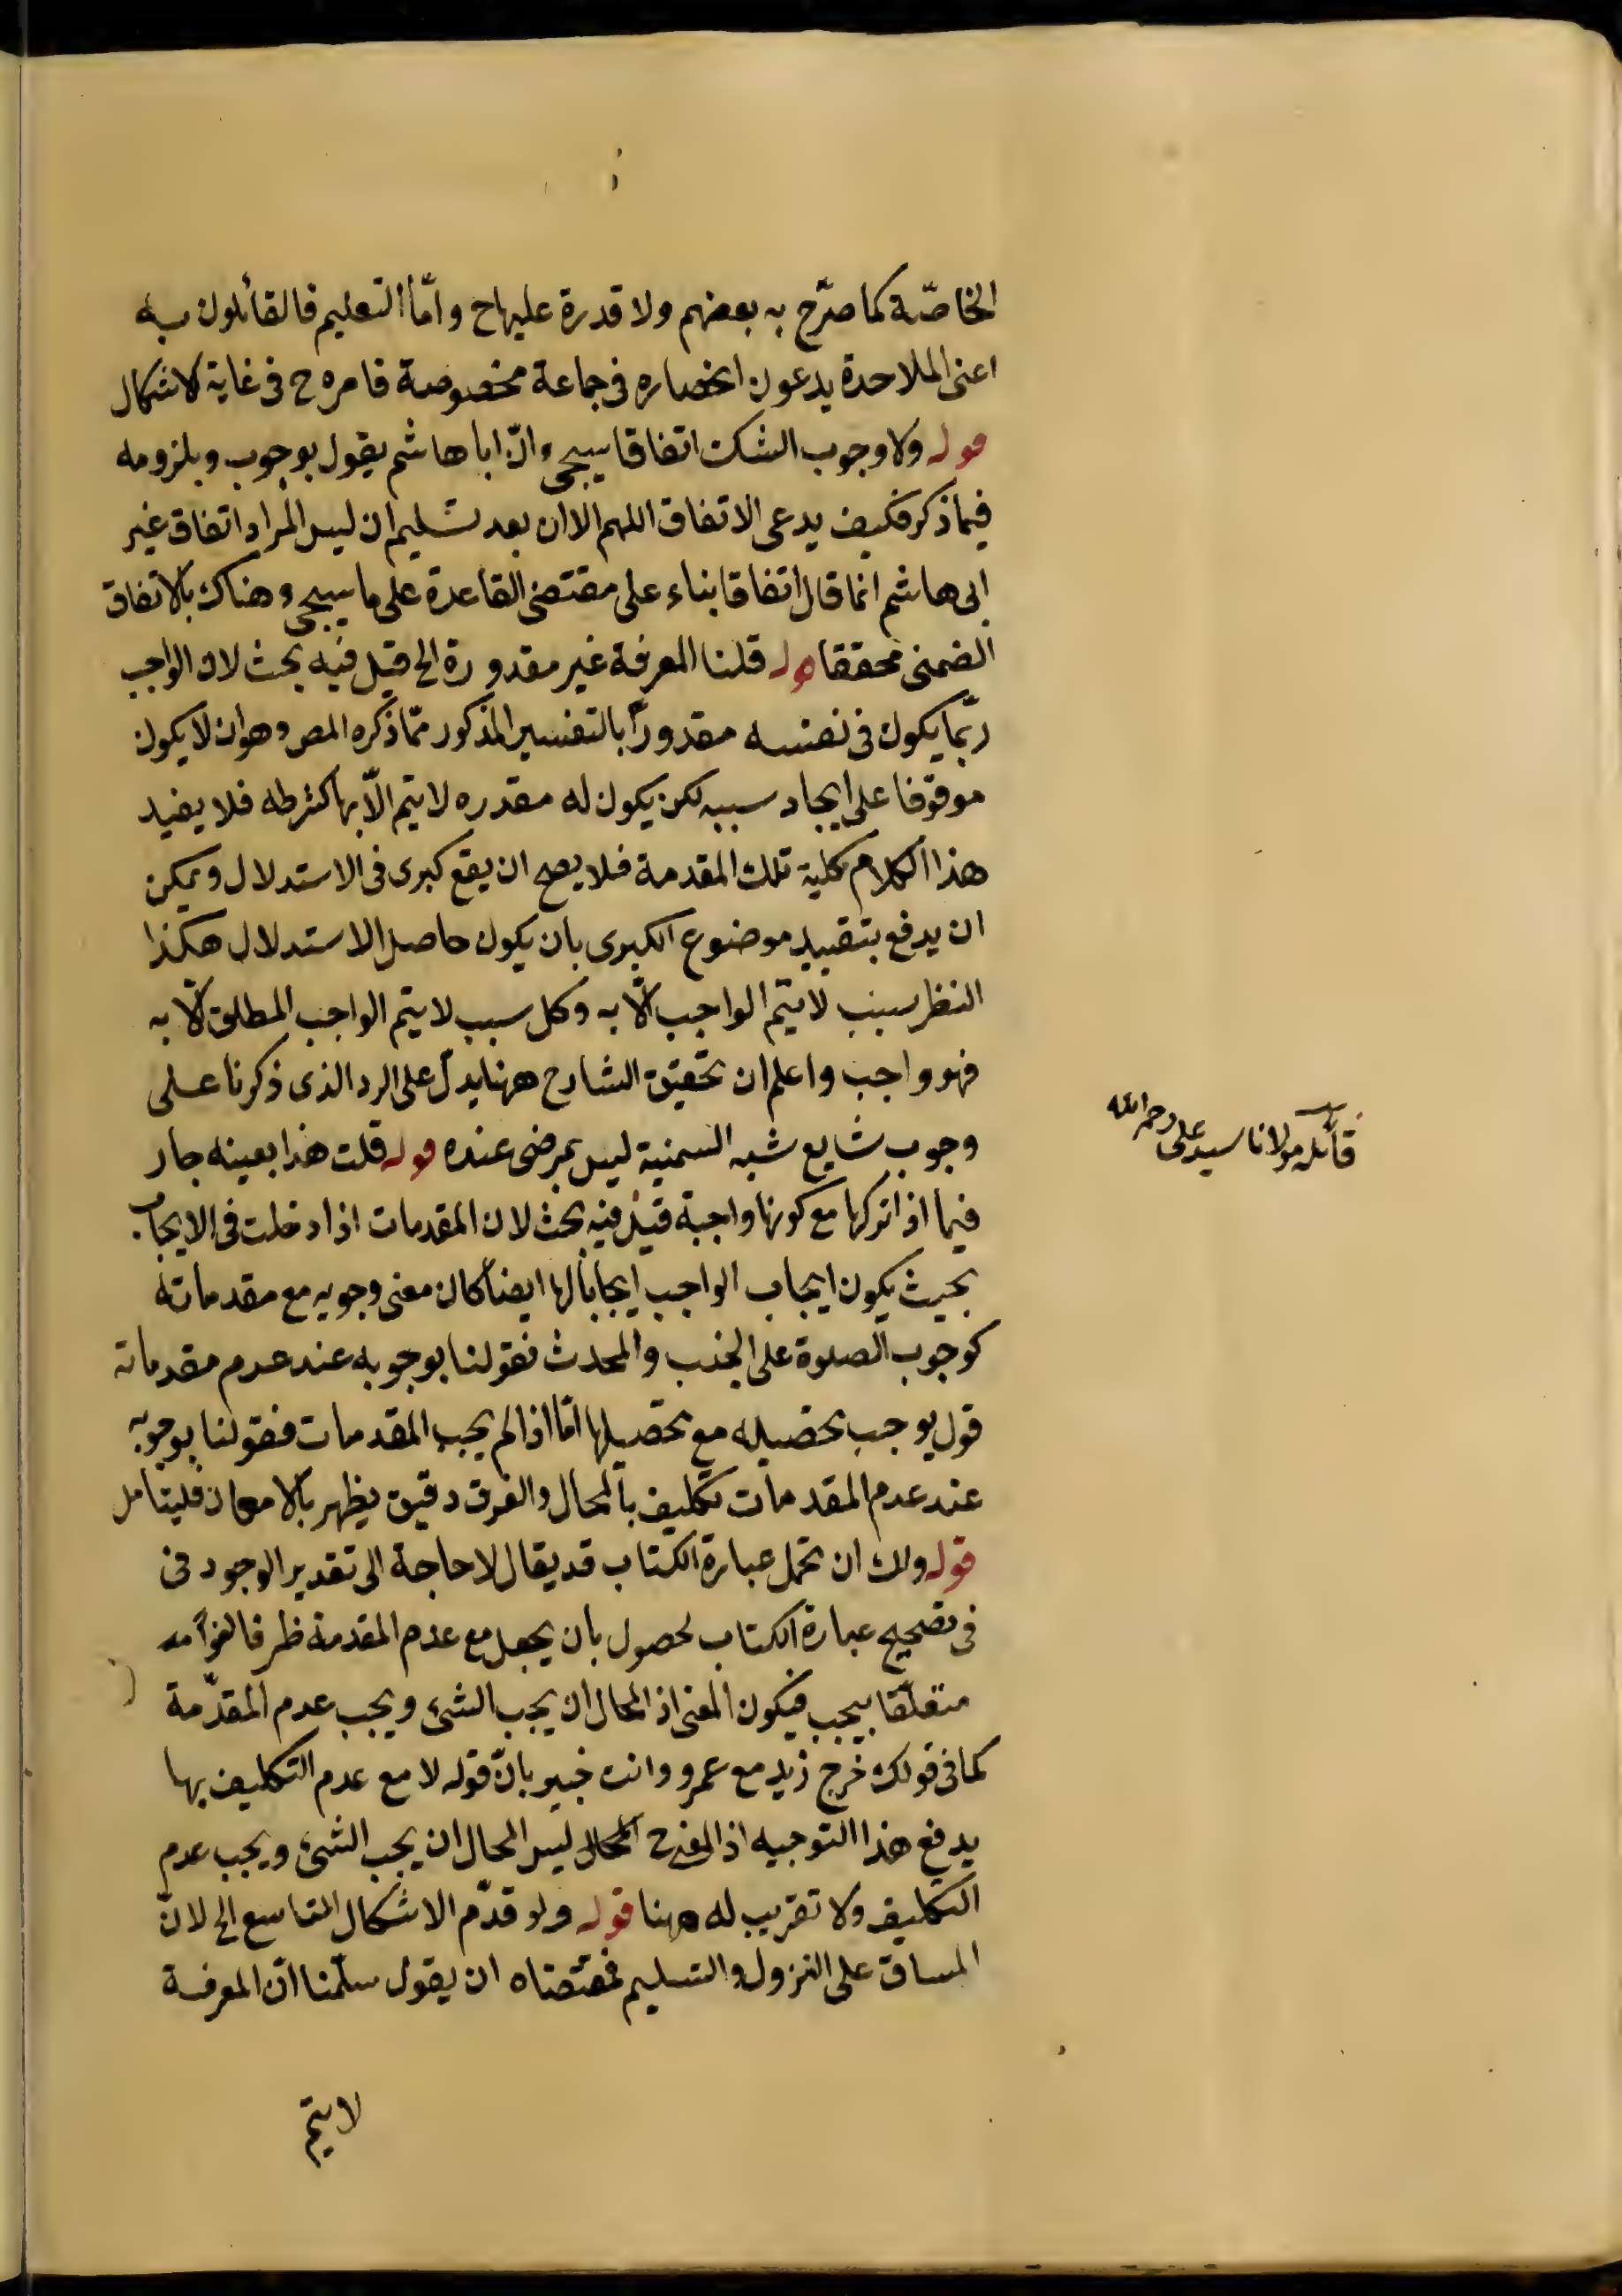 الخاصّة كما صرّح به بعضهم ولا قدرة عليها ح وامّا التعليم فالقائلون به
اعنى الملاحدة يدعون انحصاره فى جماعة مخصوصة فامره ح فى غاية الاشكال
قوله ولا وجوب الشك اتفاقا سيجىء انّ ابا هاشم يقول بوجوب ويلزومه
فيما ذكر فكيف يدعى الاتفاق اللهم الا ان بعد تسليم ان ليس المراد اتفاق غير
ابى هاشم انما قال اتفاقا بناء على مقتضى القاعدة على ما سيجىء وهناك بالاتفاق
الضمنى محققا قوله قلنا المعرفة غير مقدورة الخ قيل فيه بحث لان الواجب
ربّما يكون فى نفسه مقدورًا بالتفسير المذكور ممّا ذكره المص وهو ان لا يكون
موقوفا على ايجاد سببه لكن يكون له مقدره لا يتم الّا بها كشرطه فلا يفيد
هذا الكلام كلية تلك المقدمة فلا يصح ان يقع كبرى فى الاستدلال ويمكن
ان يدفع بتقييد موضوع الكبرى بان يكون حاصل الاستدلال هكذا
النظر سبب لا يتم الواجب الّا به وكل سبب لا يتم الواجب المطلق الّا به
فهو واجب واعلم ان تحقيق الشارح ههنا يدلّ على الرد الذى ذكرنا على
وجوب شايع شبه السمنية ليس بمرضى عنده قوله قلت هذا بعينه جار
فيما اذا تركها مع كونها واجبة قيل فيه بحث لان المقدمات اذا دخلت فى الايجاب
بحيث يكون ايجاب الواجب ايجابًا لها ايضًا كان معنى وجوبه مع مقدماته
كوجوب الصلوة على الجنب والمحدث فقولنا بوجوبه عند عدم مقدماته
قول يوجب تحصيله مع تحصيلها امّا اذا لم يجب المقدمات فقولنا بوجوبه
عند عدم المقدمات تكليف بالمحال والفرق دقيق يظهر بالامعان فليتامل
قوله ولك ان تحمل عبارة الكتاب قد يقال لا حاجة الى تقدير الوجود فى
فى تصحيح عبارة الكتاب لحصول بان يجعل مع عدم المقدمة ظرفا لغوًا
متعلّقا بيجب فيكون المعنى اذ المحال ان يجب الشئ ويجب عدم المقدّمة
كما فى قولك خرج زيد مع عمرو وانت خبير بانّ قوله لا مع عدم التكليف بها
يدفع هذا التوجيه اذ المعنى ح المحال ليس المحال ان يجب الشئ ويجب عدم
التكليف ولا تقريب له ههنا قوله ولو قدّم الاشكال التاسع الخ لانّ
المساق على النزول والتسليم فمقتضاه ان يقول سلّمنا انّ المعرفة
لا يتم
قائله مولانا سيد على رحمه الله